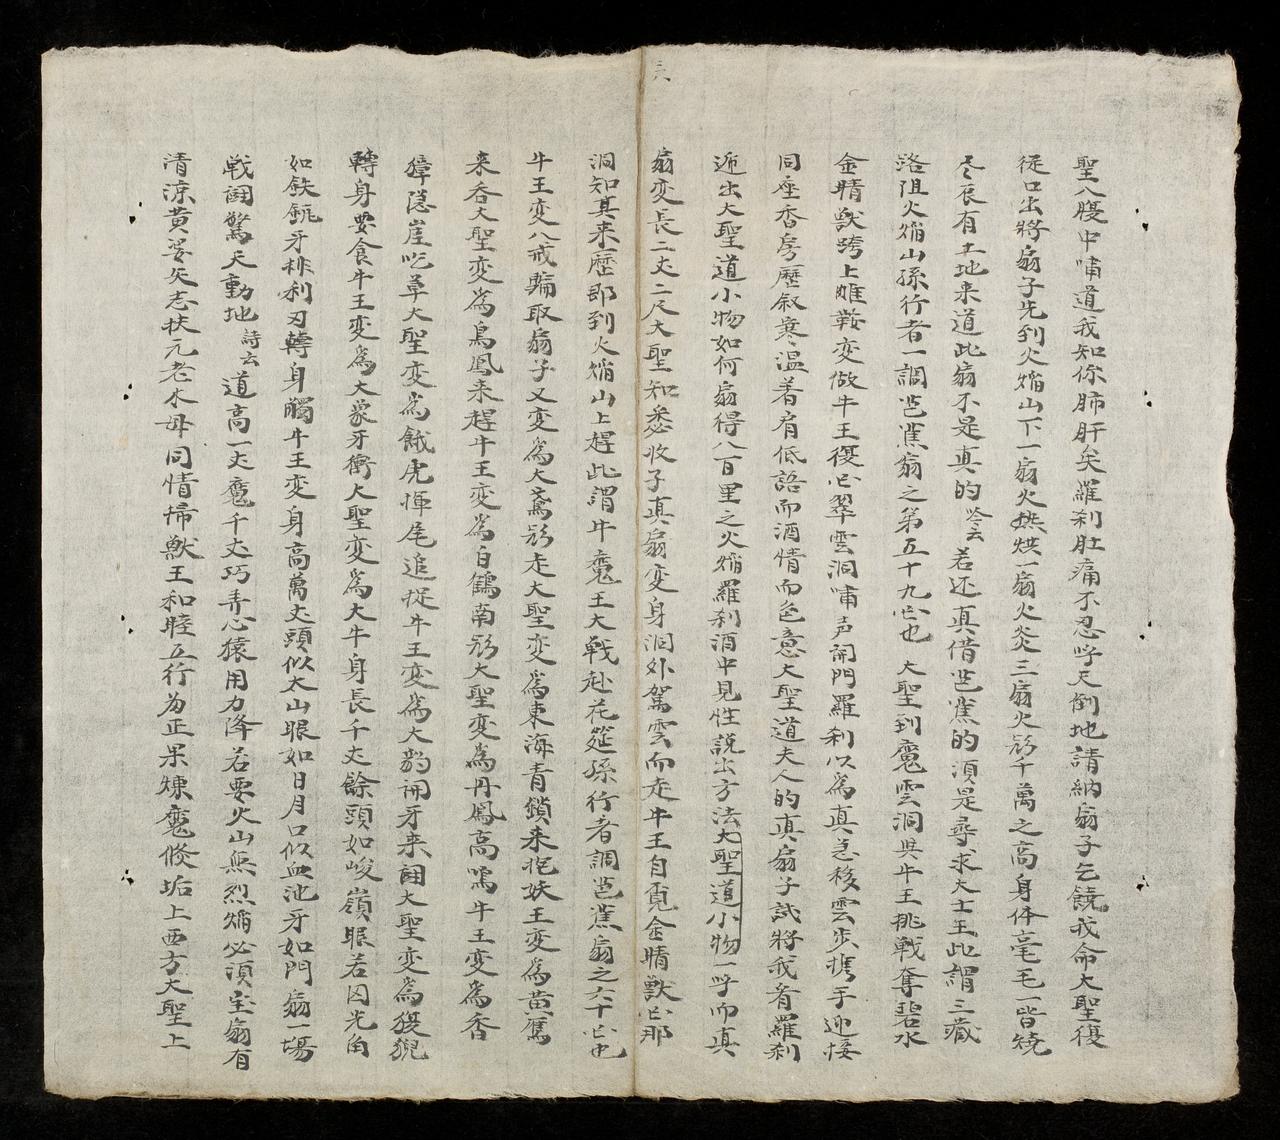 聖入腹中嘯道我知你肺肝矣羅刹肚痛不忍呼天倒地請納扇子乞饒我命大聖復
従口出將扇子先到火焔山下一扇火烘烘一扇火炎三扇火形千萬之高身体毫毛一皆燒
尽辰有土地来道此扇不是真的 若还真借芭蕉的湏是尋求大士王此謂三藏
洛阻火焔山孫行者一調芭蕉扇之第五十九 也 大聖到魔雲洞與牛王挑戦奪碧水
金睛獸跨上雕鞍变做牛王復 翠雲洞嘯声開門羅刹以為真急移雲步携手迎接
同座香房歷叙寒温着肩低語而酒情而色意大聖道夫人的真扇子試將我看羅刹
遞出大聖道小物如何扇得八百里之火焔羅刹酒中見性説出方法大聖道小物一呼而真
六
扇变長二丈二尺大聖知悉收子真扇变身洞外駕雲而走牛王自覔金睛獸 那
洞知其来歷即到火焔山上趕此謂牛魔王大戦赴花筵孫行者調芭蕉扇之六十 也
牛王变八戒騙取扇子又变為大 形走大聖变為東海青鎖来把妖王变為黄鷹
来吞大聖变為烏鳳来趕牛王变為白鶴南形大聖变為丹鳳高鳴牛王变為香
獐隠崖吃草大聖变為餓虎揮尾追捉牛王变為大豹開牙来鬪大聖变為猨猊
轉身要食牛王变為大象牙衝大聖变為大牛身長千丈餘頭如峻嶺眼若因光角
如鉄 牙排利刃轉身觸牛王变身高萬丈頭似太山眼如日月口似血池牙如門扇一場
戦鬪驚天動地 詩云 道高一丈魔千丈巧弄心猿用力降若要火山無烈焔必湏宝扇有
清凉黄婆矢志扶元老木母同情掃獸王和睦五行为正果煉魔 垢上西方大聖上